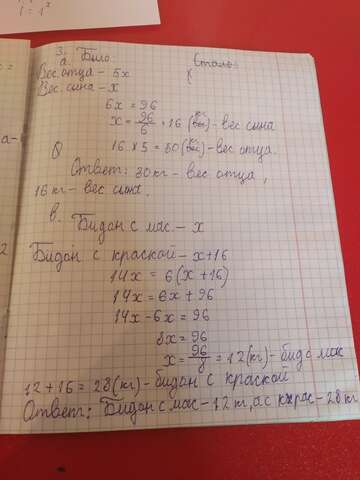 1 = 1²
3.
а. Было: Стало:
Вес отца - 5х
Вес сына - х
6х = 96
х = 96/6 = 16 (кг) - вес сына
16 × 5 = 80 (кг) - вес отца.
Ответ: 80 кг - вес отца,
16 кг - вес сына.
в.
Бидон с мас - х
Бидон с краской - х+16
14х = 6(х+16)
14х = 6х + 96
14х - 6х = 96
8х = 96
х = 96/8 = 12 (кг) - бидо мас
12 + 16 = 28 (кг) - бидон с краской
Ответ: Бидон с мас - 12 кг, а с крас - 28 кг